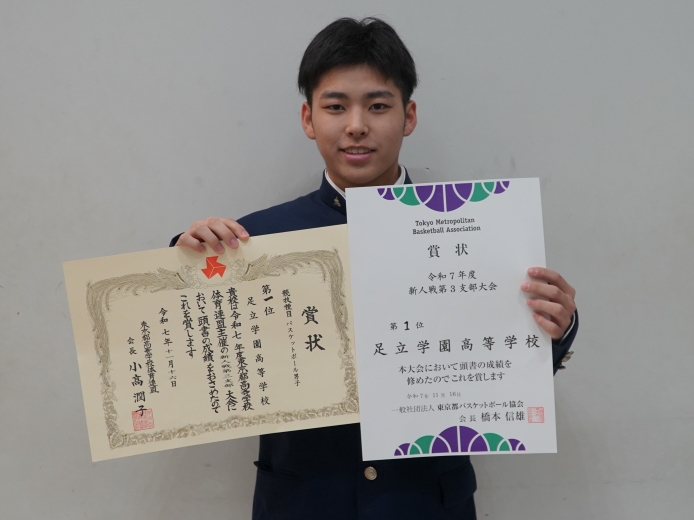 賞状
競技種目 バスケットボール男子
第一位
足立学園高等学校
貴校は令和七年度東京都高等学校
体育連盟主催の新人戦第三支部大会に
おいて頭書の成績をおさめたので
これを賞します
令和七年十一月十六日
東京都高等学校体育連盟
会長 小高潤子
Tokyo Metropolitan
Basketball Association
賞状
令和7年度
新人戦第3支部大会
第1位
足立学園高等学校
本大会において頭書の成績を
修めたのでこれを賞します
令和7年11月16日
一般社団法人 東京都バスケットボール協会
会長 橋本信雄